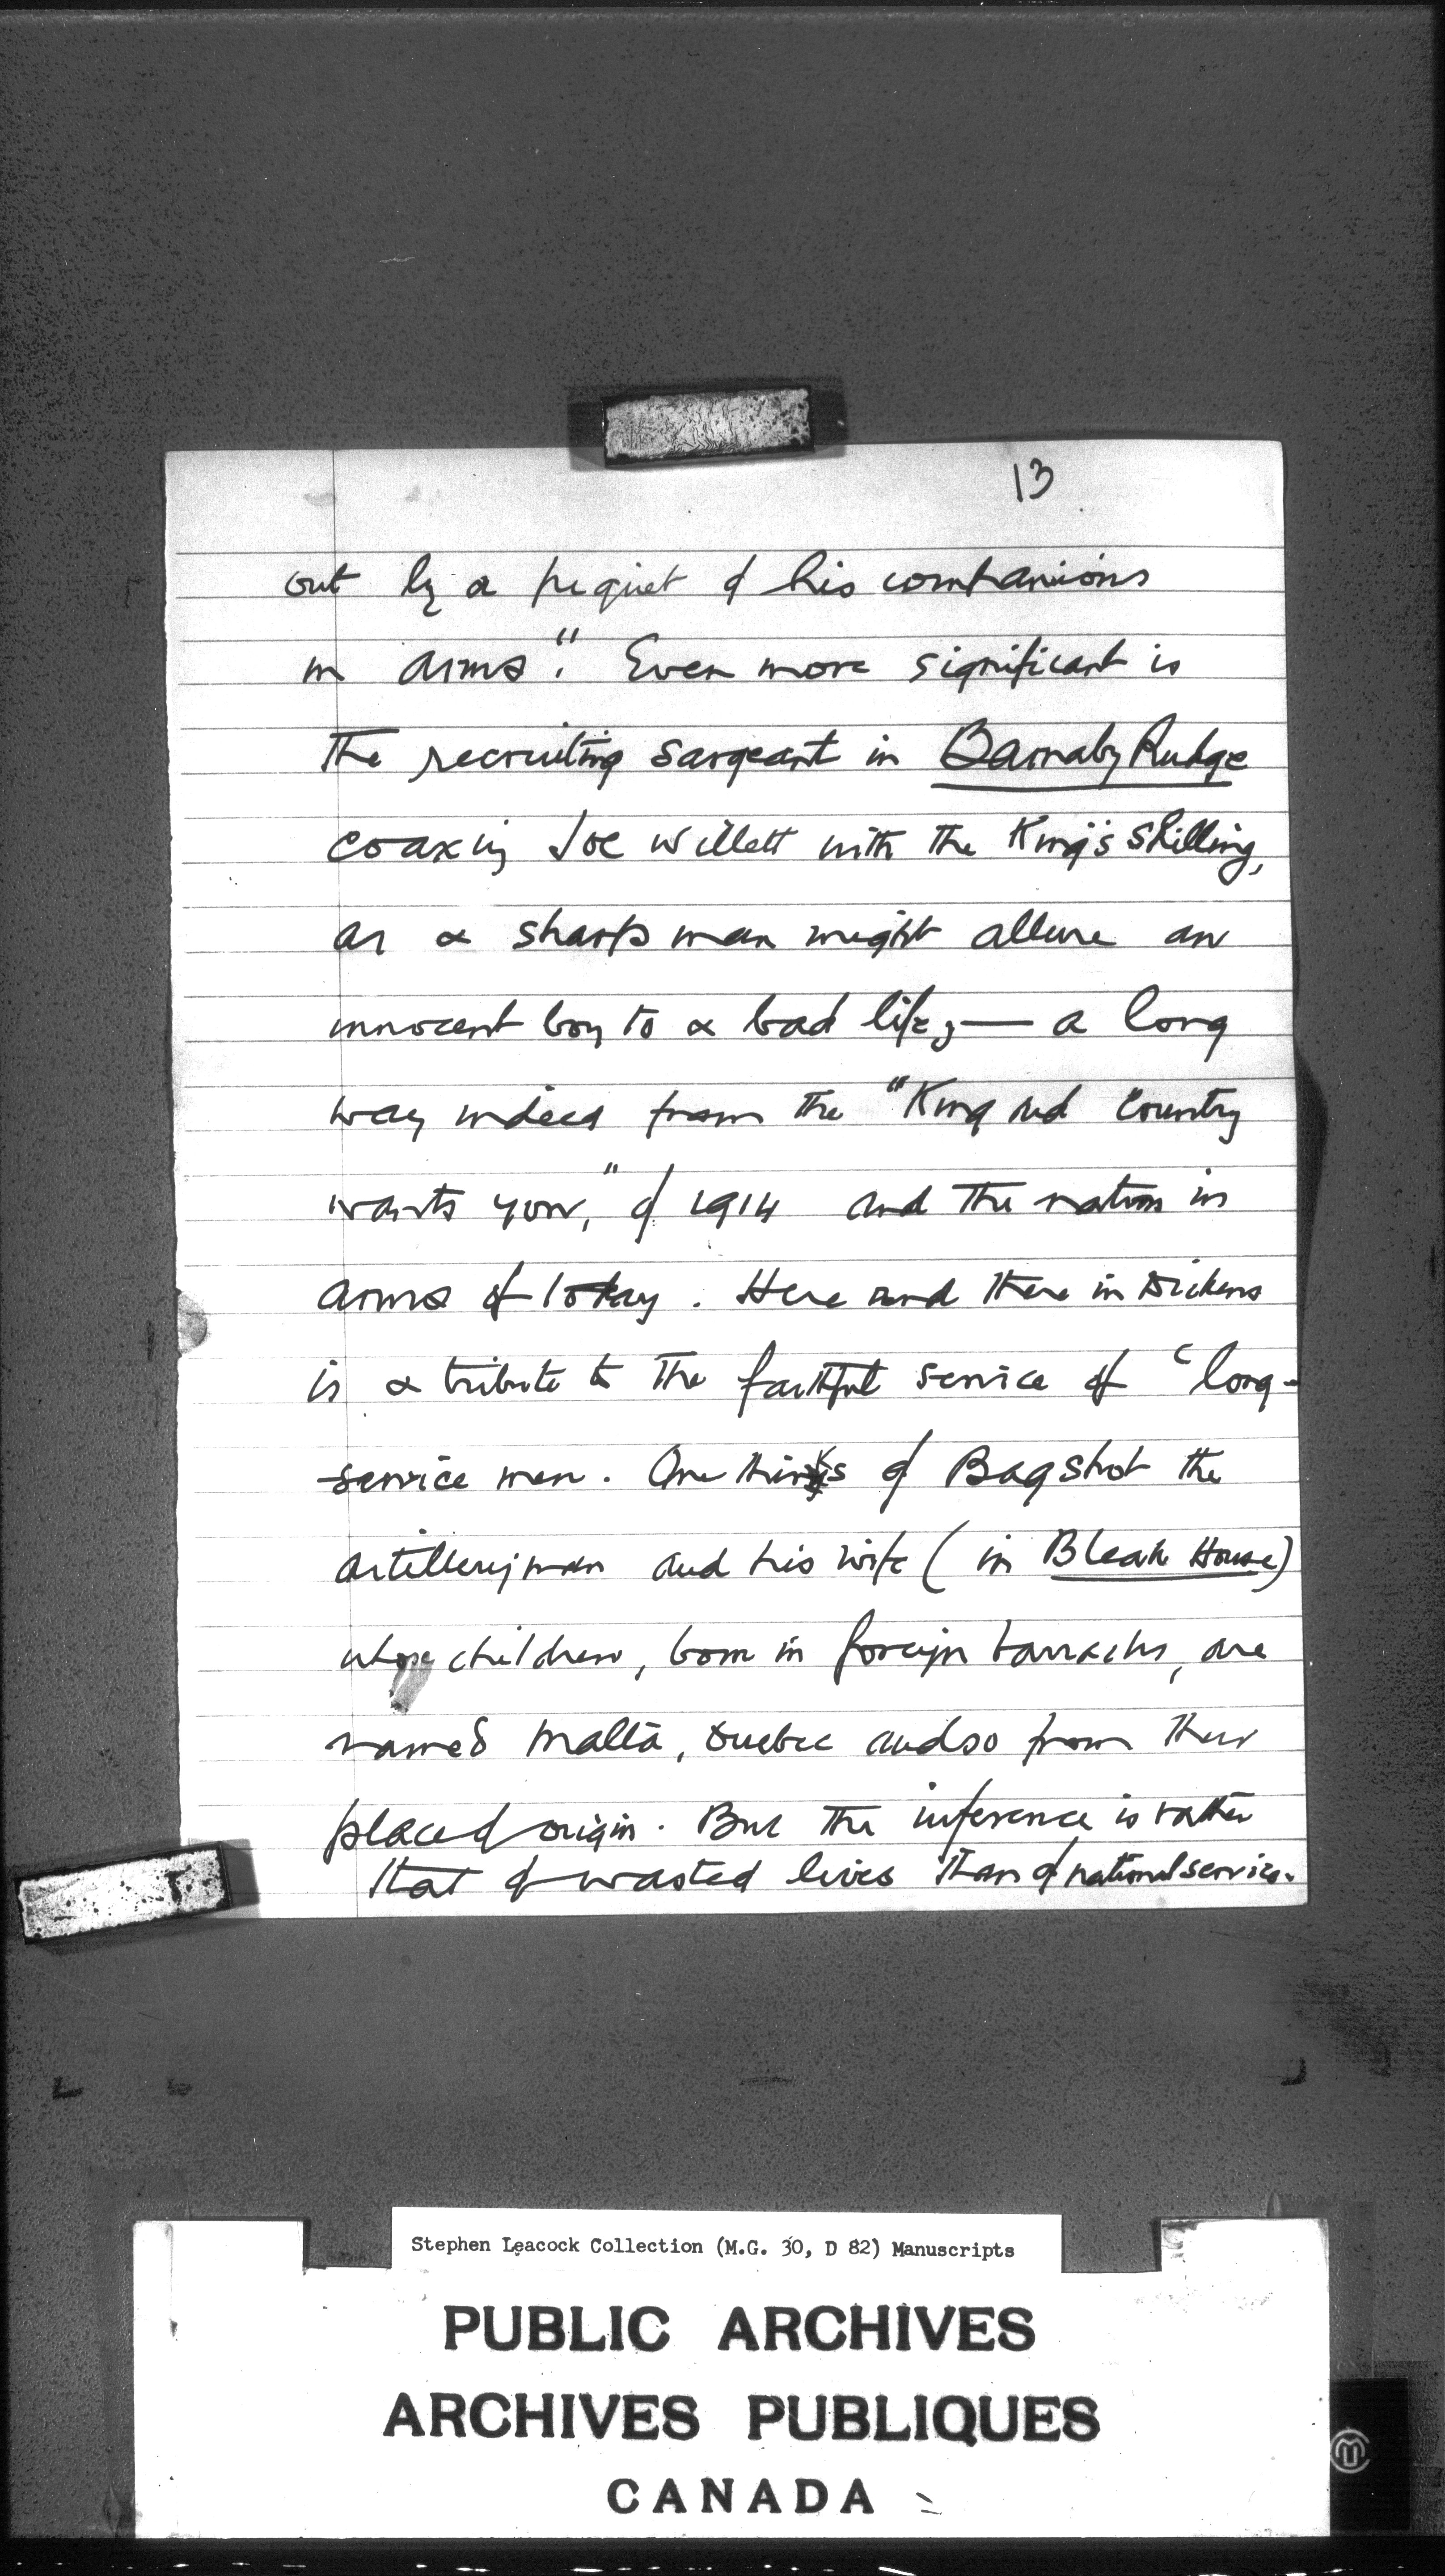 13
out by a piquet of his companions
in arms". Even more significant is
the recruiting sargeant in Barnaby Rudge
coaxing Joe Willett with the King's shilling,
as a sharp man might allure an
innocent boy to a bad life, — a long
way indeed from the "King and Country
wants you," of 1914 and the nation in
arms of today. Here and there in Dickens
is a tribute to the faithful service of long-
service men. One thinks of Bagshot the
artilleryman and his wife (in Bleak House)
whose children, born in foreign barracks, are
named Malta, Quebec and so from their
place of origin. But the inference is rather
that of wasted lives than of national service.
Stephen Leacock Collection (M.G. 30, D 82) Manuscripts
PUBLIC ARCHIVES
ARCHIVES PUBLIQUES
CANADA